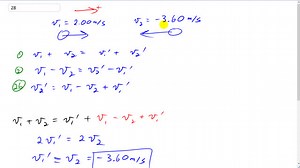 28
+
v₁ = 2.00 m/s v₂ = -3.60 m/s
① v₁ + v₂ = v₁' + v₂'
② v₁ - v₂ = v₂' - v₁'
②b v₂' = v₁ - v₂ + v₁'
v₁ + v₂ = v₁' + v₁ - v₂ + v₁'
2v₁' = 2v₂
v₁' = v₂ = -3.60 m/s